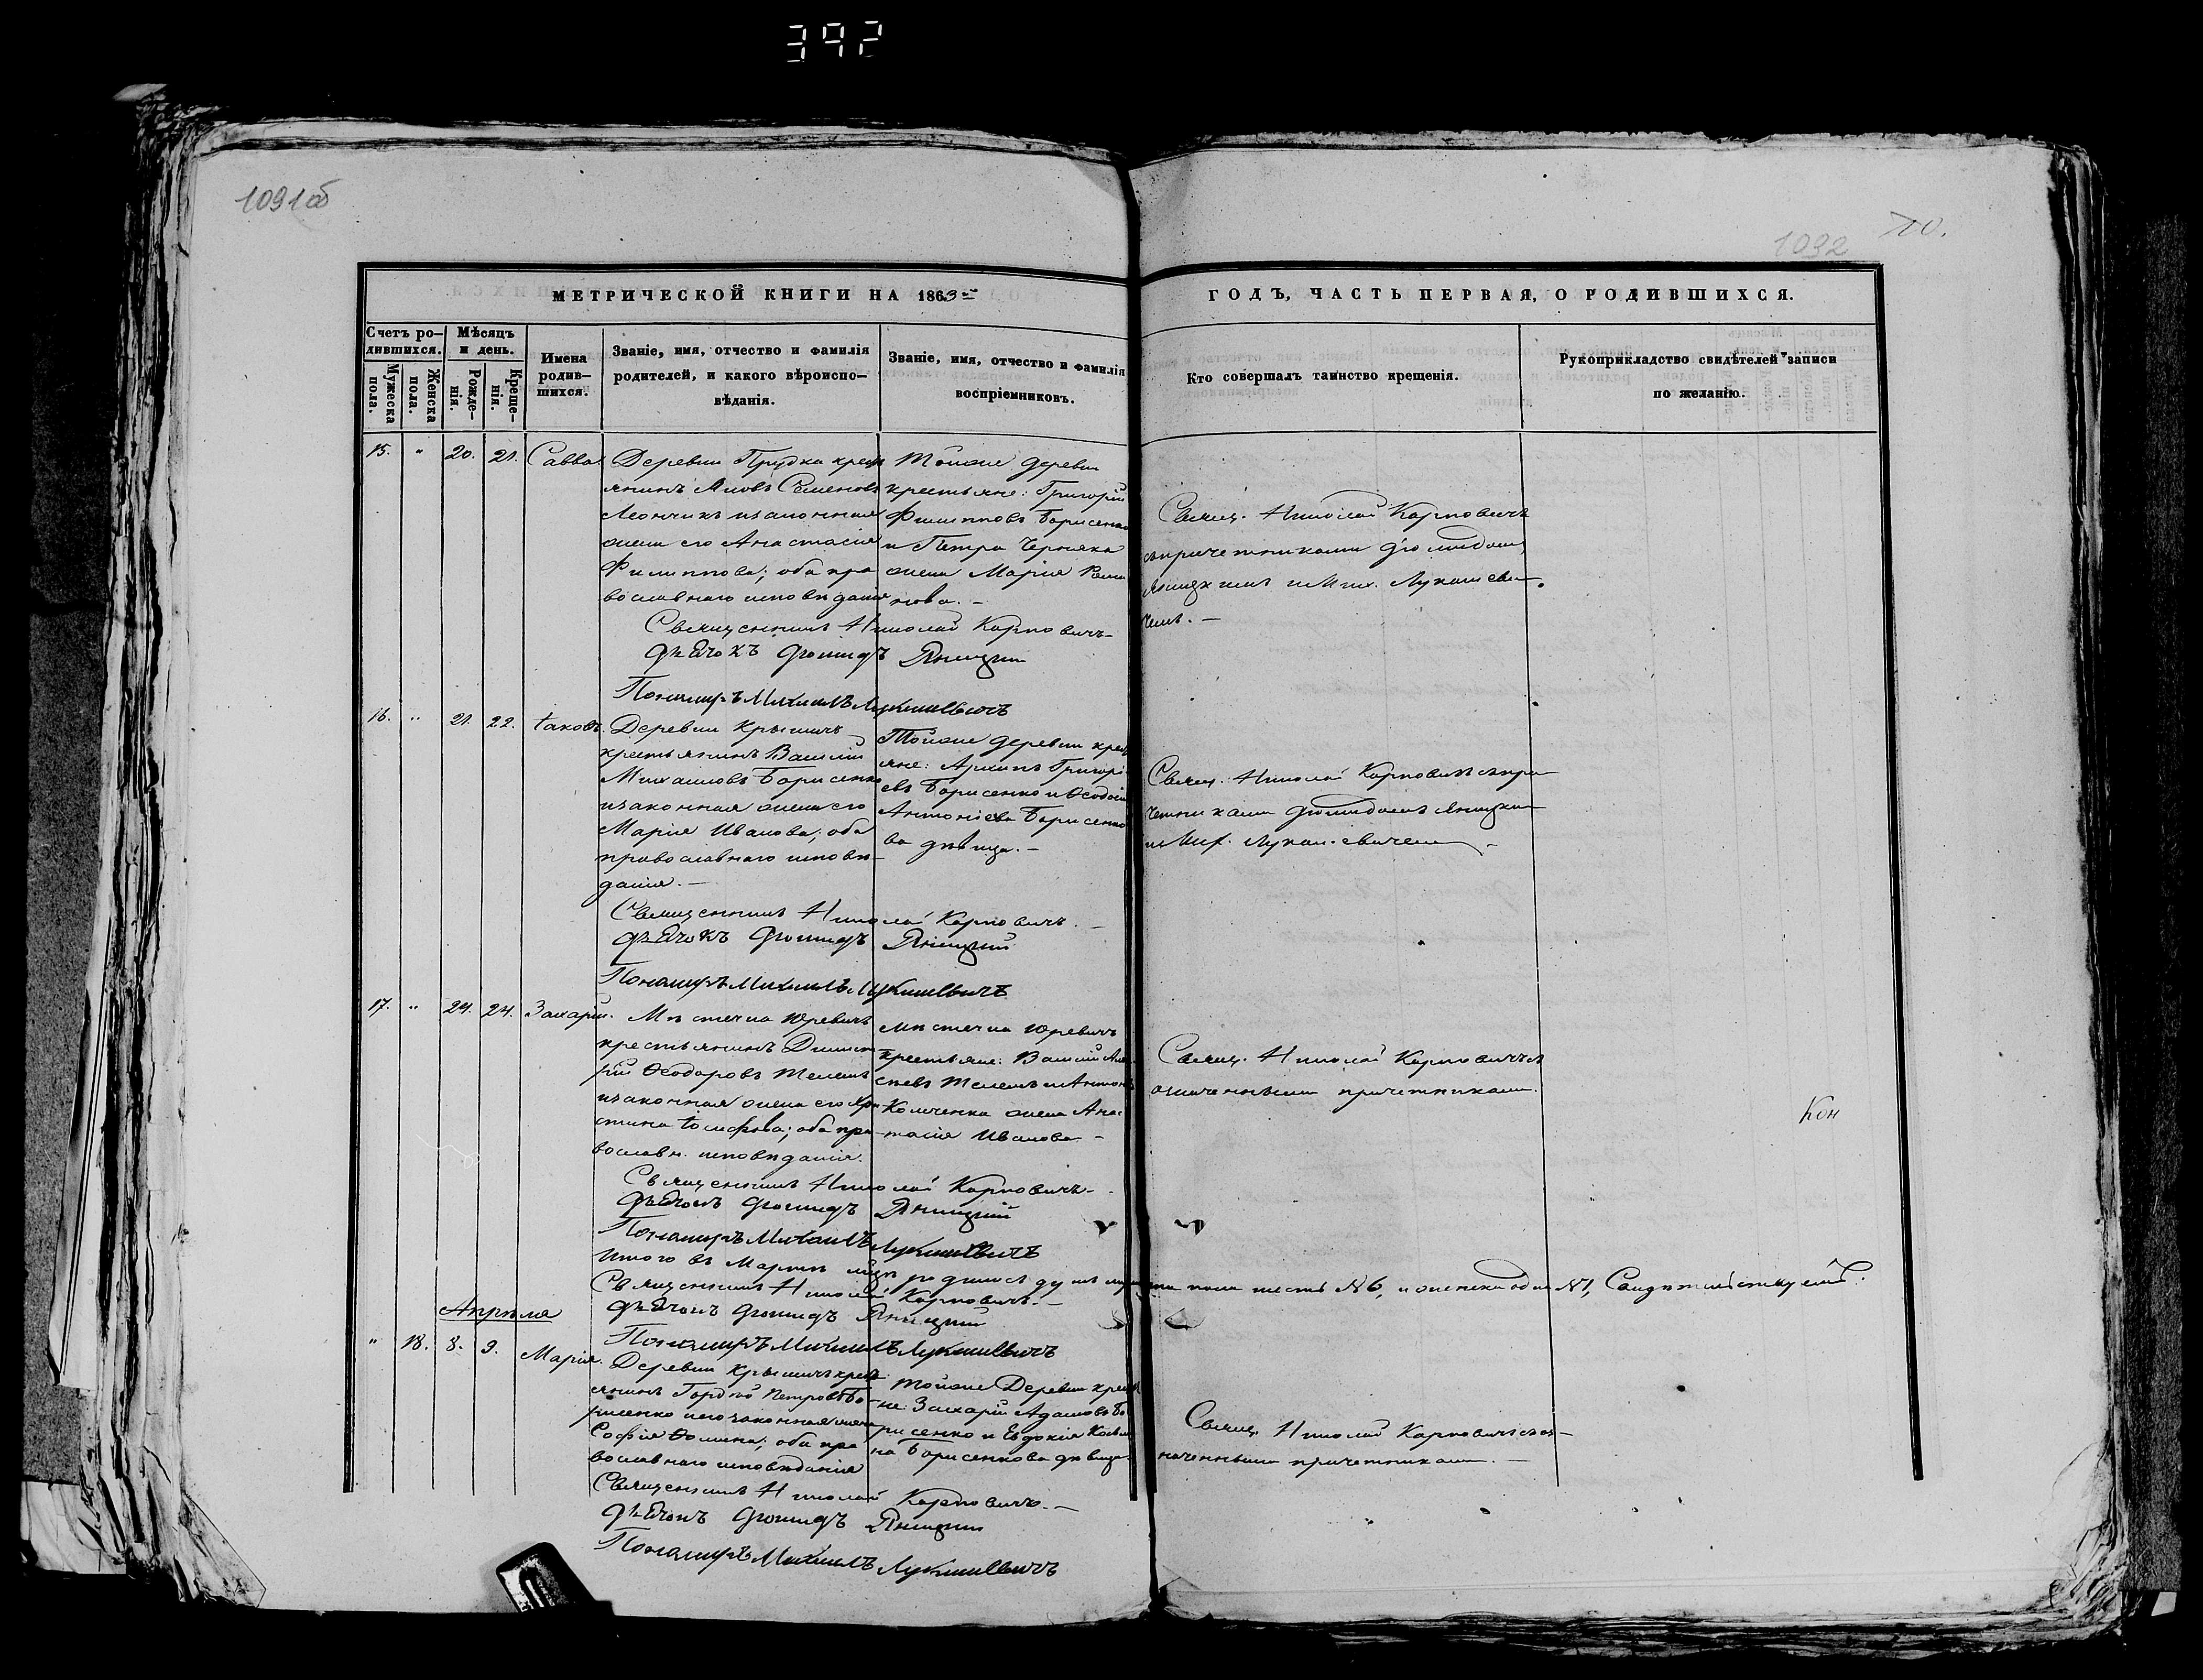 392
1091об
1092
70.
МЕТРИЧЕСКОЙ КНИГИ НА 1863
ГОДЪ, ЧАСТЬ ПЕРВАЯ, О РОДИВШИХСЯ.
Счетъ ро-
дившихся.
Мужеска
пола.
Женска
пола.
Мѣсяцъ
и день.
Рожде-
нія.
Креще-
нія.
Имена
родив-
шихся.
Званіе, имя, отчество и фамилія
родителей, и какого вѣроиспо-
вѣданія.
Званіе, имя, отчество и фамилія
воспріемниковъ.
Кто совершалъ таинство крещенія.
Рукоприкладство свидѣтелей записи
по желанію.
15. " 20. 21. Савва
Деревни Прудка крестъ
янинъ Іаковъ Семеновъ
Леончикъ и законная
жена его Анастасія
Филиппова; оба пра
вославнаго исповѣданія
Тойже деревни
крестьяне: Григорій
Филипповъ Борисенко
и Петра Черняка
жена Марія Рома
нова.-
Свящ. Николай Карповичъ
съ причетниками Діомидомъ
Яницкимъ и Мих. Лукашеви-
чемъ.-
Священникъ Николай Карповичъ
Дьячокъ Діомидъ Яницкій
Пономарь Михаилъ Лукашевичъ
16. " 21. 22. Іаковъ.
Деревни Крышичъ
крестьянинъ Василій
Михаиловъ Борисенко
и законная жена его
Марія Иванова; оба
православнаго исповѣ-
данія.-
Тойже деревни кресть
яне: Архипъ Григорі
евъ Борисенко и Ѳеодосія
Антоніева Борисенко
ва дѣвица.-
Свящ. Николай Карповичъ съ при
четниками Діомидомъ Яницким
и Мих. Лукашевичем-
Священникъ Николай Карповичъ.-
Дьячокъ Діомидъ Яницкій
Пономарь Михаилъ Лукашевичъ
17. " 24. 24. Захарій.
Мѣстечка Юревичъ
крестьянинъ Димит
рій Ѳеодоровъ Телешъ
и законная жена его Хри
стина Іосифова; оба пра-
вославн. исповѣданія.
Мѣстечка Юревичъ
крестьяне: Василій Але
сѣевъ Телешъ и Антона
жена Анас
тасія Иванова-
Свящ. Николай Карповичъ съ
означенными причетниками.
Кон
Священникъ Николай Карповичъ-
Дьячокъ Діомидъ Яницкій
Пономарь Михаилъ Лукашевичъ
Итого въ Мартѣ мцѣ родилось душъ мужеска пола шесть №6, и женска одна №1, Свидѣтельствуемъ:
Священникъ Николай Карповичъ.-
Дьячокъ Діомидъ Яницкій
Пономарь Михаилъ Лукашевичъ
Апрѣля
" 18. 8. 9. Марія.
Деревни Крышичъ кресть
янинъ Гордѣй Петровъ Бо-
рисенко и его законная жена
Софія Ѳомина; оба пра
вославнаго исповѣданія
Тойже Деревни кресть
не: Захарій Адамовъ Бо
рисенко и Евдокія Косьми
на Борисенкова дѣвица
Свящ. Николай Карповичъ съ оз-
наченными причетниками.-
Священникъ Николай Карповичъ.-
Дьячокъ Діомидъ Яницкій
Пономарь Михаилъ Лукашевичъ